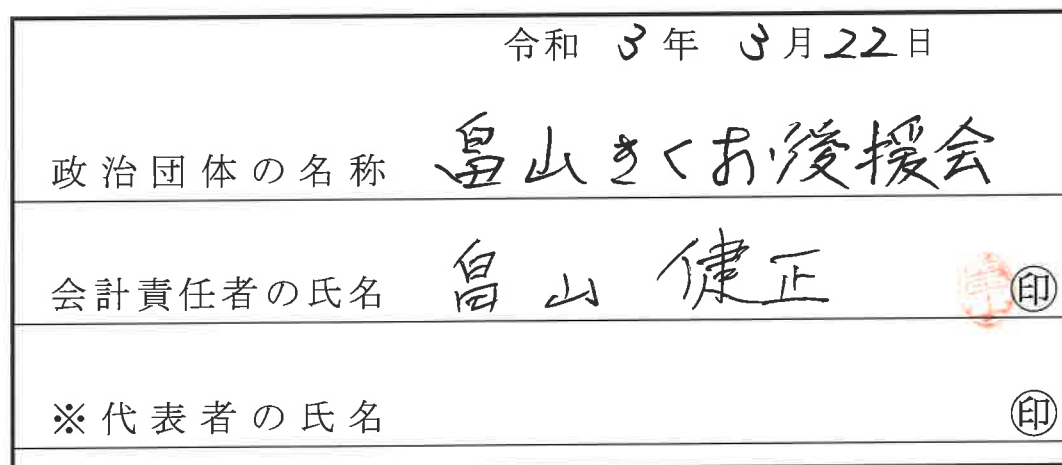 令和 3年 3月22日
政治団体の名称 畠山きくお後援会
会計責任者の氏名 畠山 健正 ㊞
※代表者の氏名 ㊞